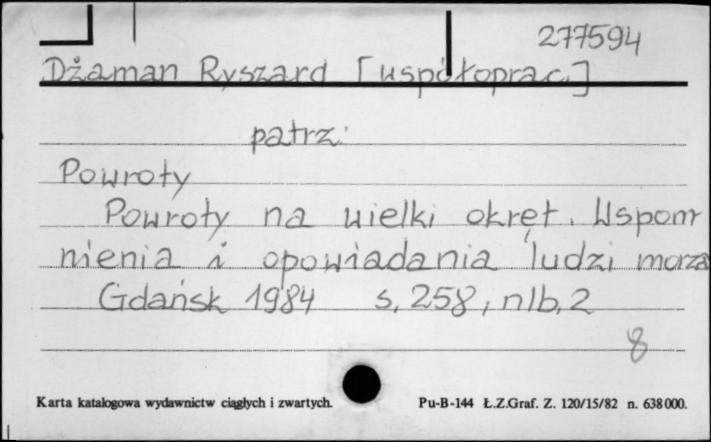 277594
Dżaman Ryszard [współoprac.]
patrz:
Powroty
Powroty na wielki okręt. Wspom
nienia i opowiadania ludzi morza
Gdańsk 1984 s. 258, nlb. 2
8
Karta katalogowa wydawnictw ciągłych i zwartych.
Pu-B-144 Ł.Z.Graf. Z. 120/15/82 n. 638000.